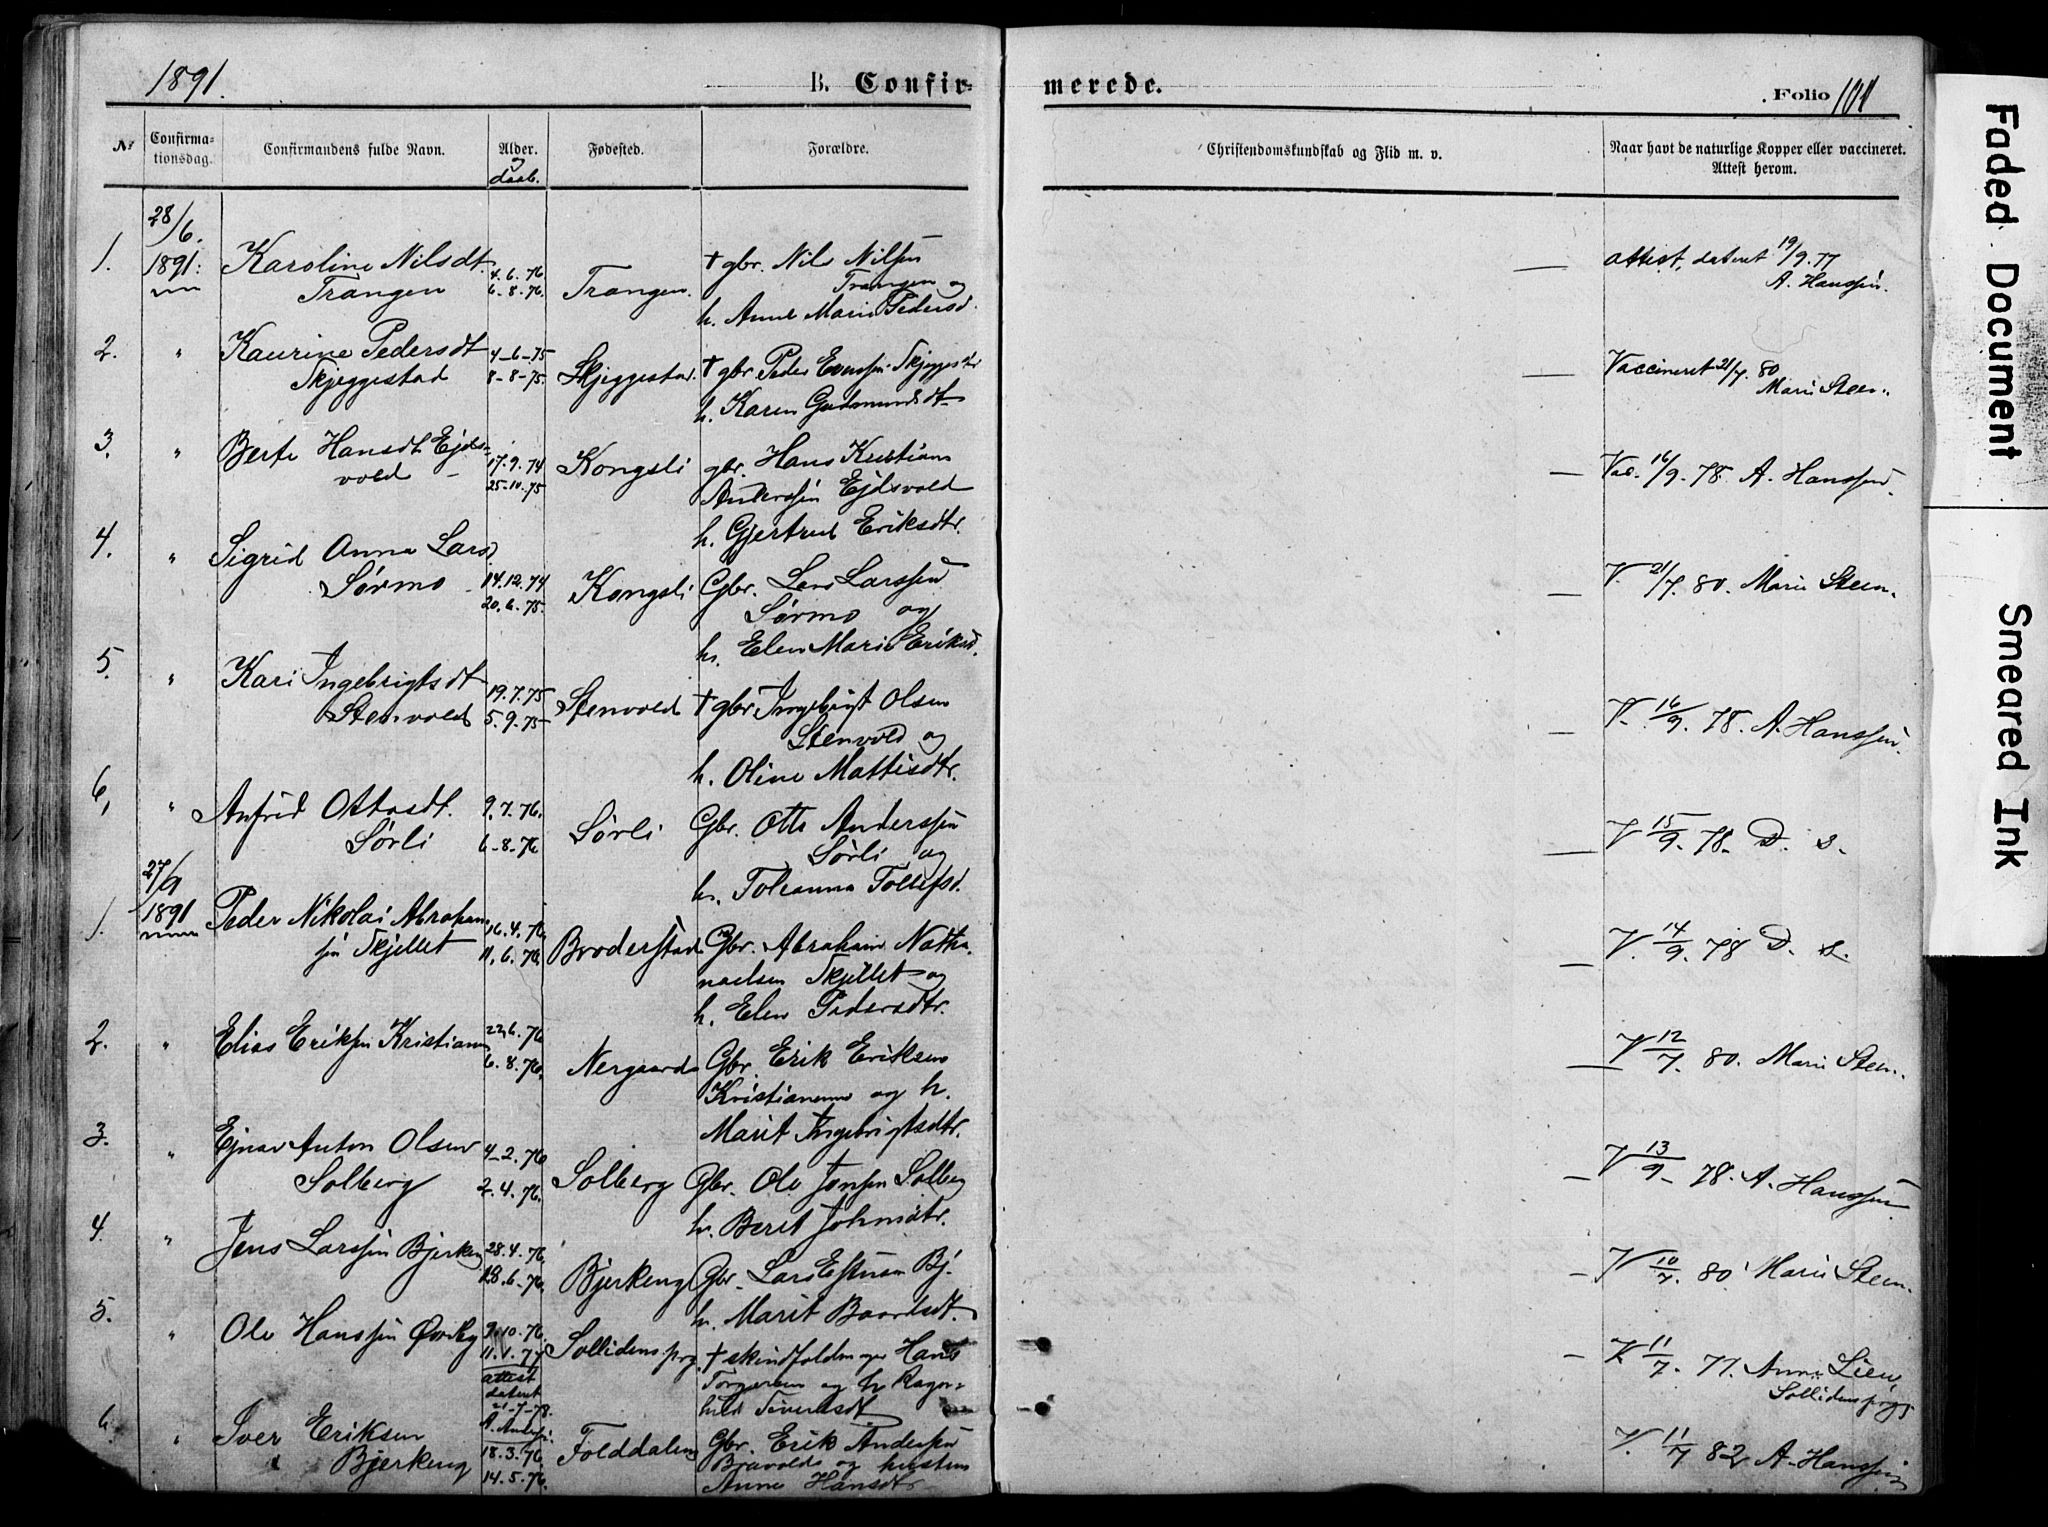 1891.
B. Confir-
merede.
Folio 101
Nr
Confirma-
tionsdag.
Confirmandens fulde Navn.
Alder.
daab.
Fødested.
Forældre.
Christendomskundskab og Flid m. v.
Naar havt de naturlige Kopper eller vaccineret.
Attest herom.
28/6.
1. 1891. Karoline Nilsdt. 4.6.76 † gbr. Nils Nilsen
Trangen 6-8.76. Trangen. Trangen og
h. Anne Marie Pedersd.
— attest, dateret 19/9.77
A. Hanssen.
2. " Kaurine Pedersdt 4-6-75
Skjeggestad 8-8-75. Skjeggestad. † gbr Peder Skjeggestad
h. Karen Gudmundsdt
— Vaccineret 21/7. 80
Marie Steen.
3. " Berte Hansdt Ejds-
vold 17.9.74 Kongsli gbr. Hans Kristian
25-10.75 Anderssen Ejdsvold
h. Gjertrud Eriksdtr.
— Vac. 16/9. 78. A. Hanssen.
4. " Sigrid Anna Lars
Sørmo 14.12.74 Kongsli Gbr. Lars Larssen
20.6.75. Sørmo og
h. Elen Marie Eriksd.
— V. 21/7. 80. Marie Steen.
5. " Kari Ingebrigtsdt 19.7.75
Stenvold 5.9.75 Stenvold † gbr Ingebrigt Olsen
Stenvold og
h. Oline Mattisdtr.
— V. 16/9. 78. A. Hanssen.
6, " Anfrid Ottosdt. 9.7.76. Gbr. Otto Anderssen
Sørli 6-8-76 Sørli Sørli og
h. Johanna Tollefsd.
— V 15/9. 78. D. S.
27/9
1. 1891 Peder Nikolai Abraham
sen Skjellet 16.4.76. 11.6.76 Broderstad Gbr. Abraham Natha-
naelsen Skjellet og
h. Elen Pedersdtr.
— V. 14/9. 78 D. S.
2. " Elias Eriksen Kristian 22.6.76
6.8.76. Nergaard Gbr. Erik Eriksen
og h.
Marit Ingebrigtsdtr.
— V 12/7. 80. Marie Steen.
3. " Ejnar Anton Olsen 4-2.76
Solberg 2.4.76. Solberg Gbr. Ole Jonsen Solberg
h. Berit Johnsdtr.
— V 13/9. 78. A. Hanssen
4. " Jens Larssen Bjerkeng 28.4.76.
18.6-76. Bjerkeng Gbr. Lars Estensen Bj.
h. Marit Baardsdt.
— V 10/7. 80. Marie Steen.
5. " Ole Hanssen 9.10.76.
11.1.77 Sollidens prg. † Hans
og h. Ragn-
hild
attest
dateret
21-7-78.
— V. 11/7. 77. Anne Lien,
Sollidens prgj
6. " Iver Eriksen
Bjerkeng 18.3.76. 14.5.76. Folddalen Gbr. Erik Andersen
og hustru
Anne Hansdt
V. 11/7 82 A. Hanssen
Faded Document
Smeared Ink